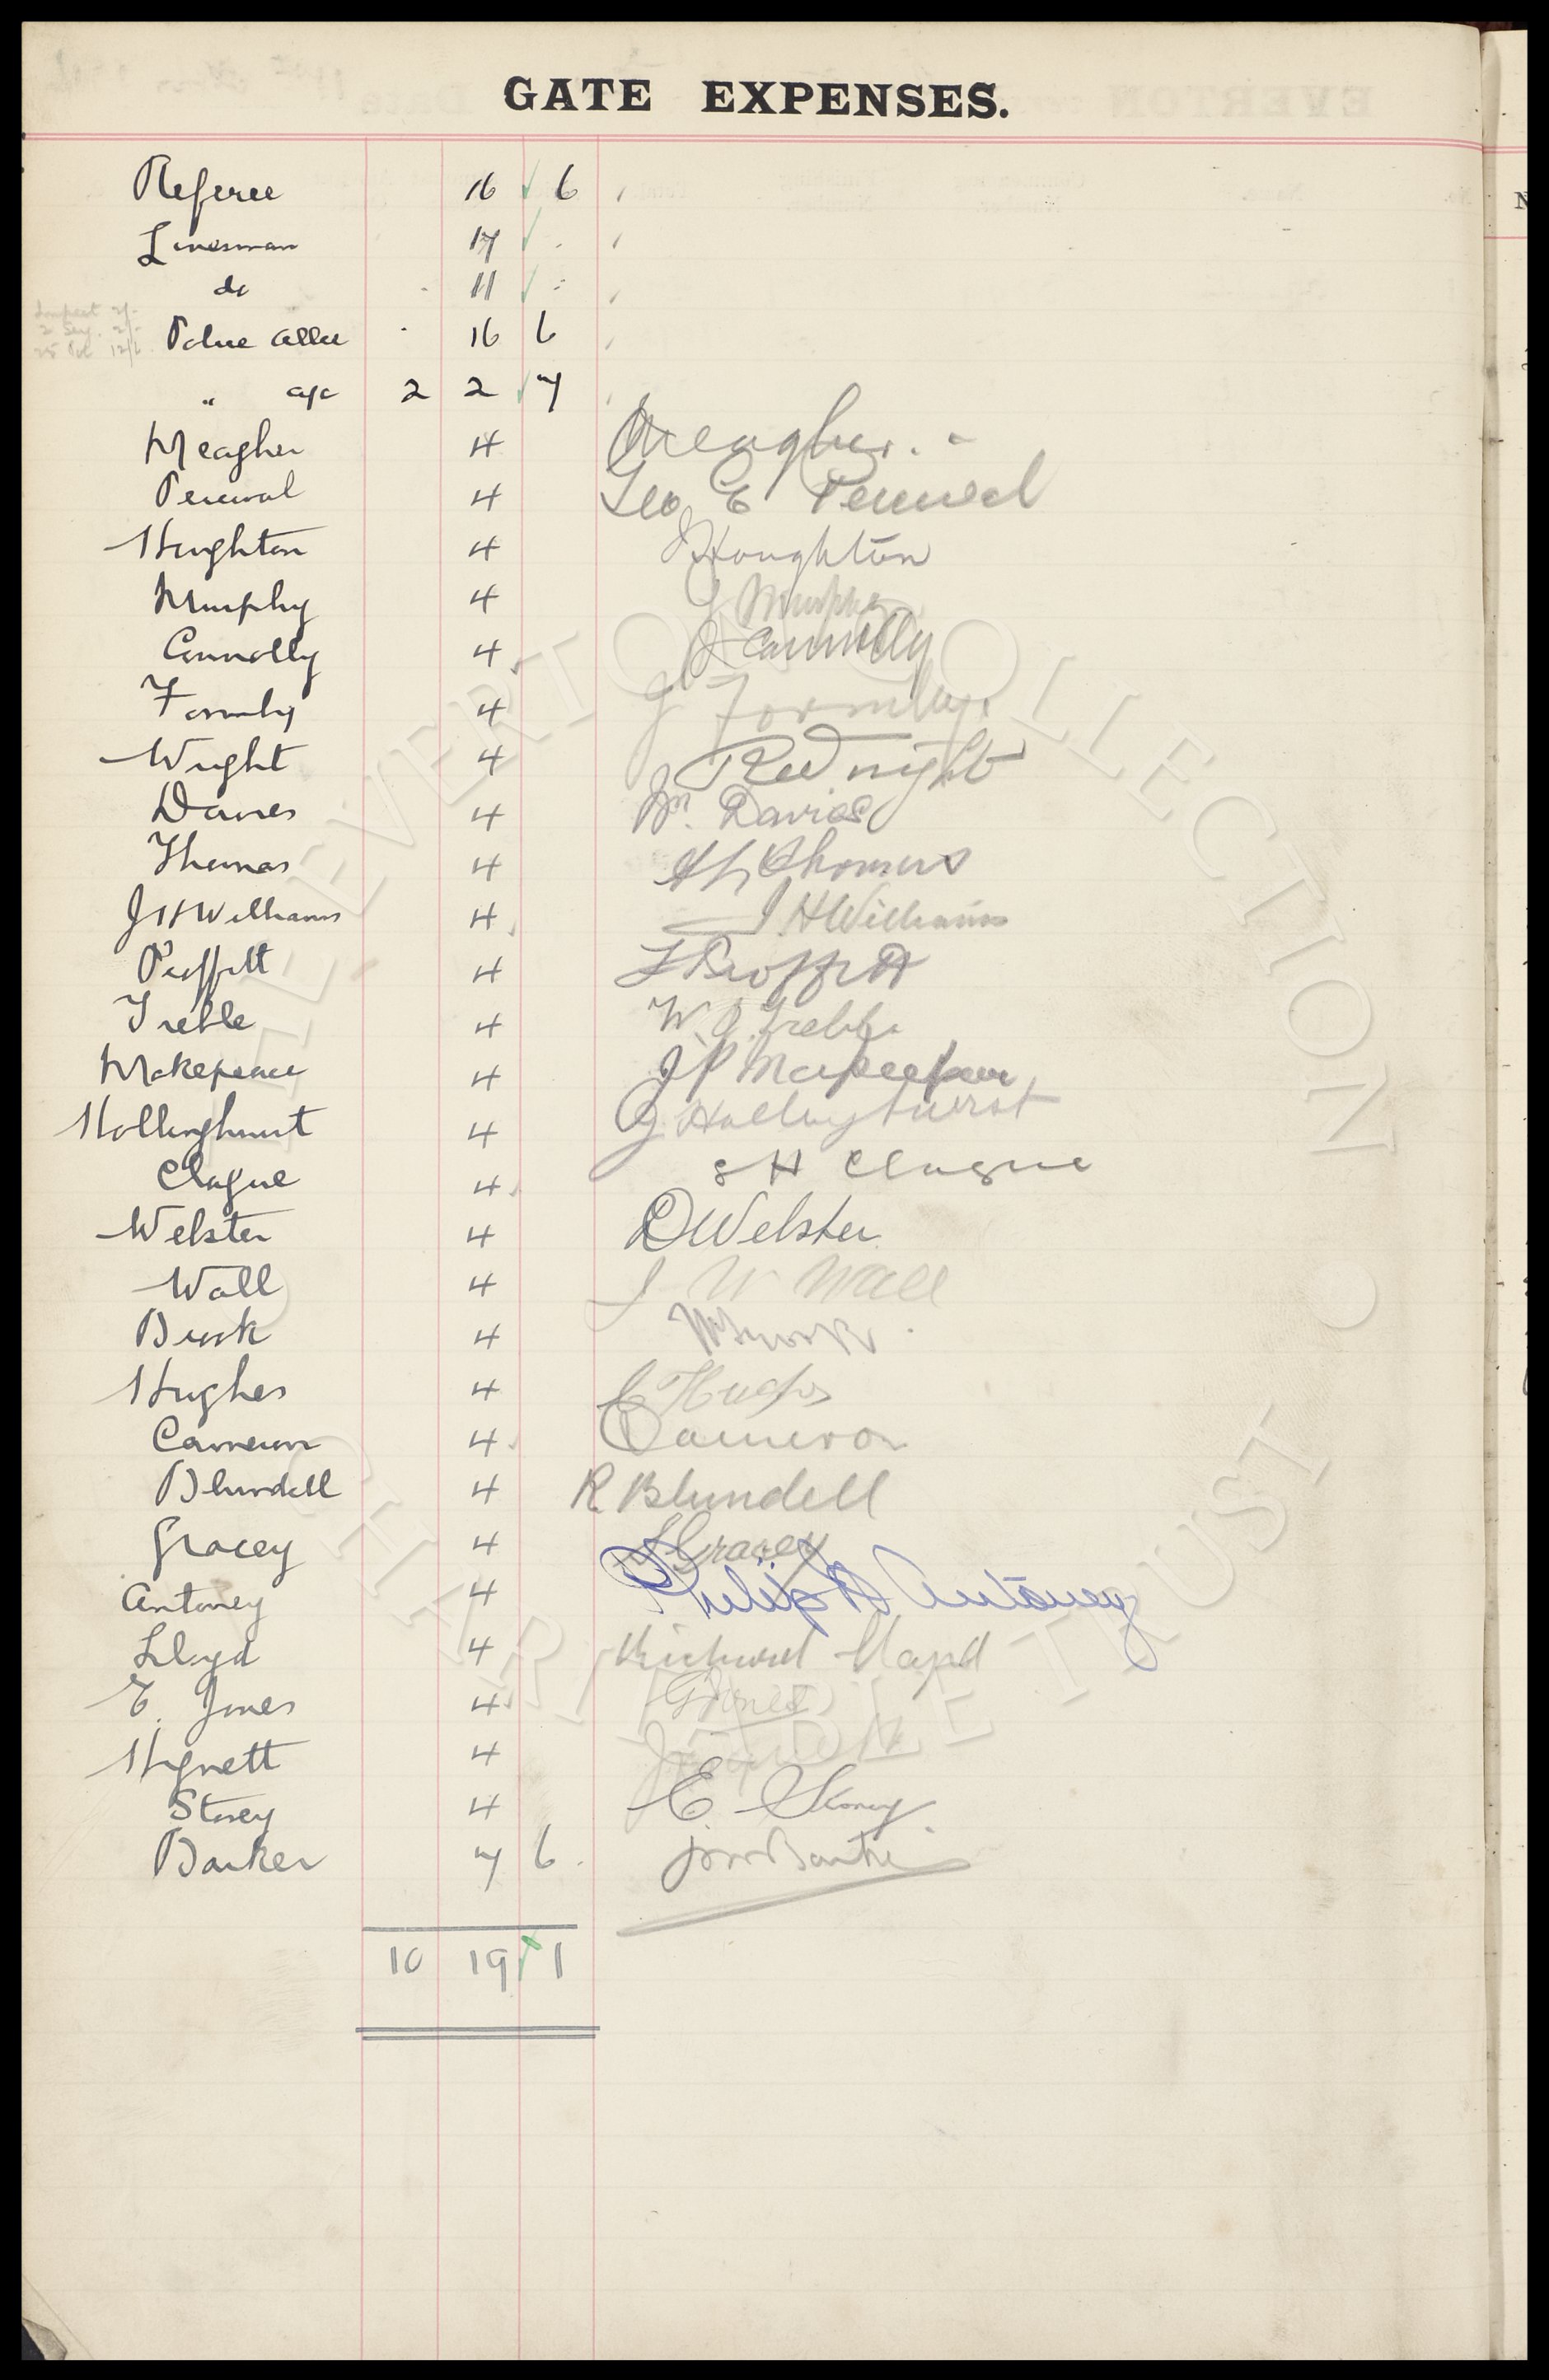 GATE EXPENSES.
Referee 16 6
Linesman 17 .
do 11
Police Allce 16 6
2 Serg. 2/-
25 Pol 12/6
" a/c 2 2 7
Meagher 4 Meagher.
Percival 4 Geo E Percival
Houghton 4 J Houghton
Murphy 4 J Murphy
Connolly 4 J Connolly
Formby 4 J Formby
Wright 4 R W Wright
Davies 4 Jn. Davies
Thomas 4 Thomas
J H Williams 4 J H Williams
Proffitt 4 Proffitt
Treble 4 W. J. Treble
Makepeace 4 J P Makepeace
Hollinghurst 4 J Hollinghurst
Clague 4 S H Clague
Webster 4 D Webster
Wall 4 J W Wall
Brook 4 Brook
Hughes 4 E Hughes
Cameron 4 Cameron
Blundell 4 R Blundell
Gracey 4 Gracey
Antoney 4 Philip Antoney
Lloyd 4 Richard Lloyd
E. Jones 4 E Jones
Hignett 4
Storey 4 E. Storey
Barker 7 6 Barker
10 19 1
THE EVERTON COLLECTION CHARITABLE TRUST ©